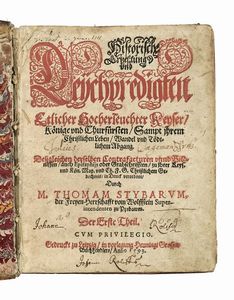 Historische
und
Leychpredigten
Etlicher Hocherleuchter Keyser/
Könige und Churfürsten / Sampt ihrem
Christlichen Leben / Wandel und Tödt-
lichen Abgang.
Desgleichen derselben Contrafacturen und Bild-
nissen / auch Epitaphia oder Grabschrifften / zu ihrer Keys.
und Kön. May. und Ch. F. G. Christlichen Ge-
dechtnis / in Druck verordnet /
Durch
M. THOMAM STYBARUM,
der Freyen Herrschafft vom Wolffstein Super-
intendenten zu Pyrbaum.
Der Erste Theil.
Johann
CUM PRIVILEGIO.
Gedruckt zu Leipzig / in vorlegung Hennings Grossen /
Buchhändler / Anno